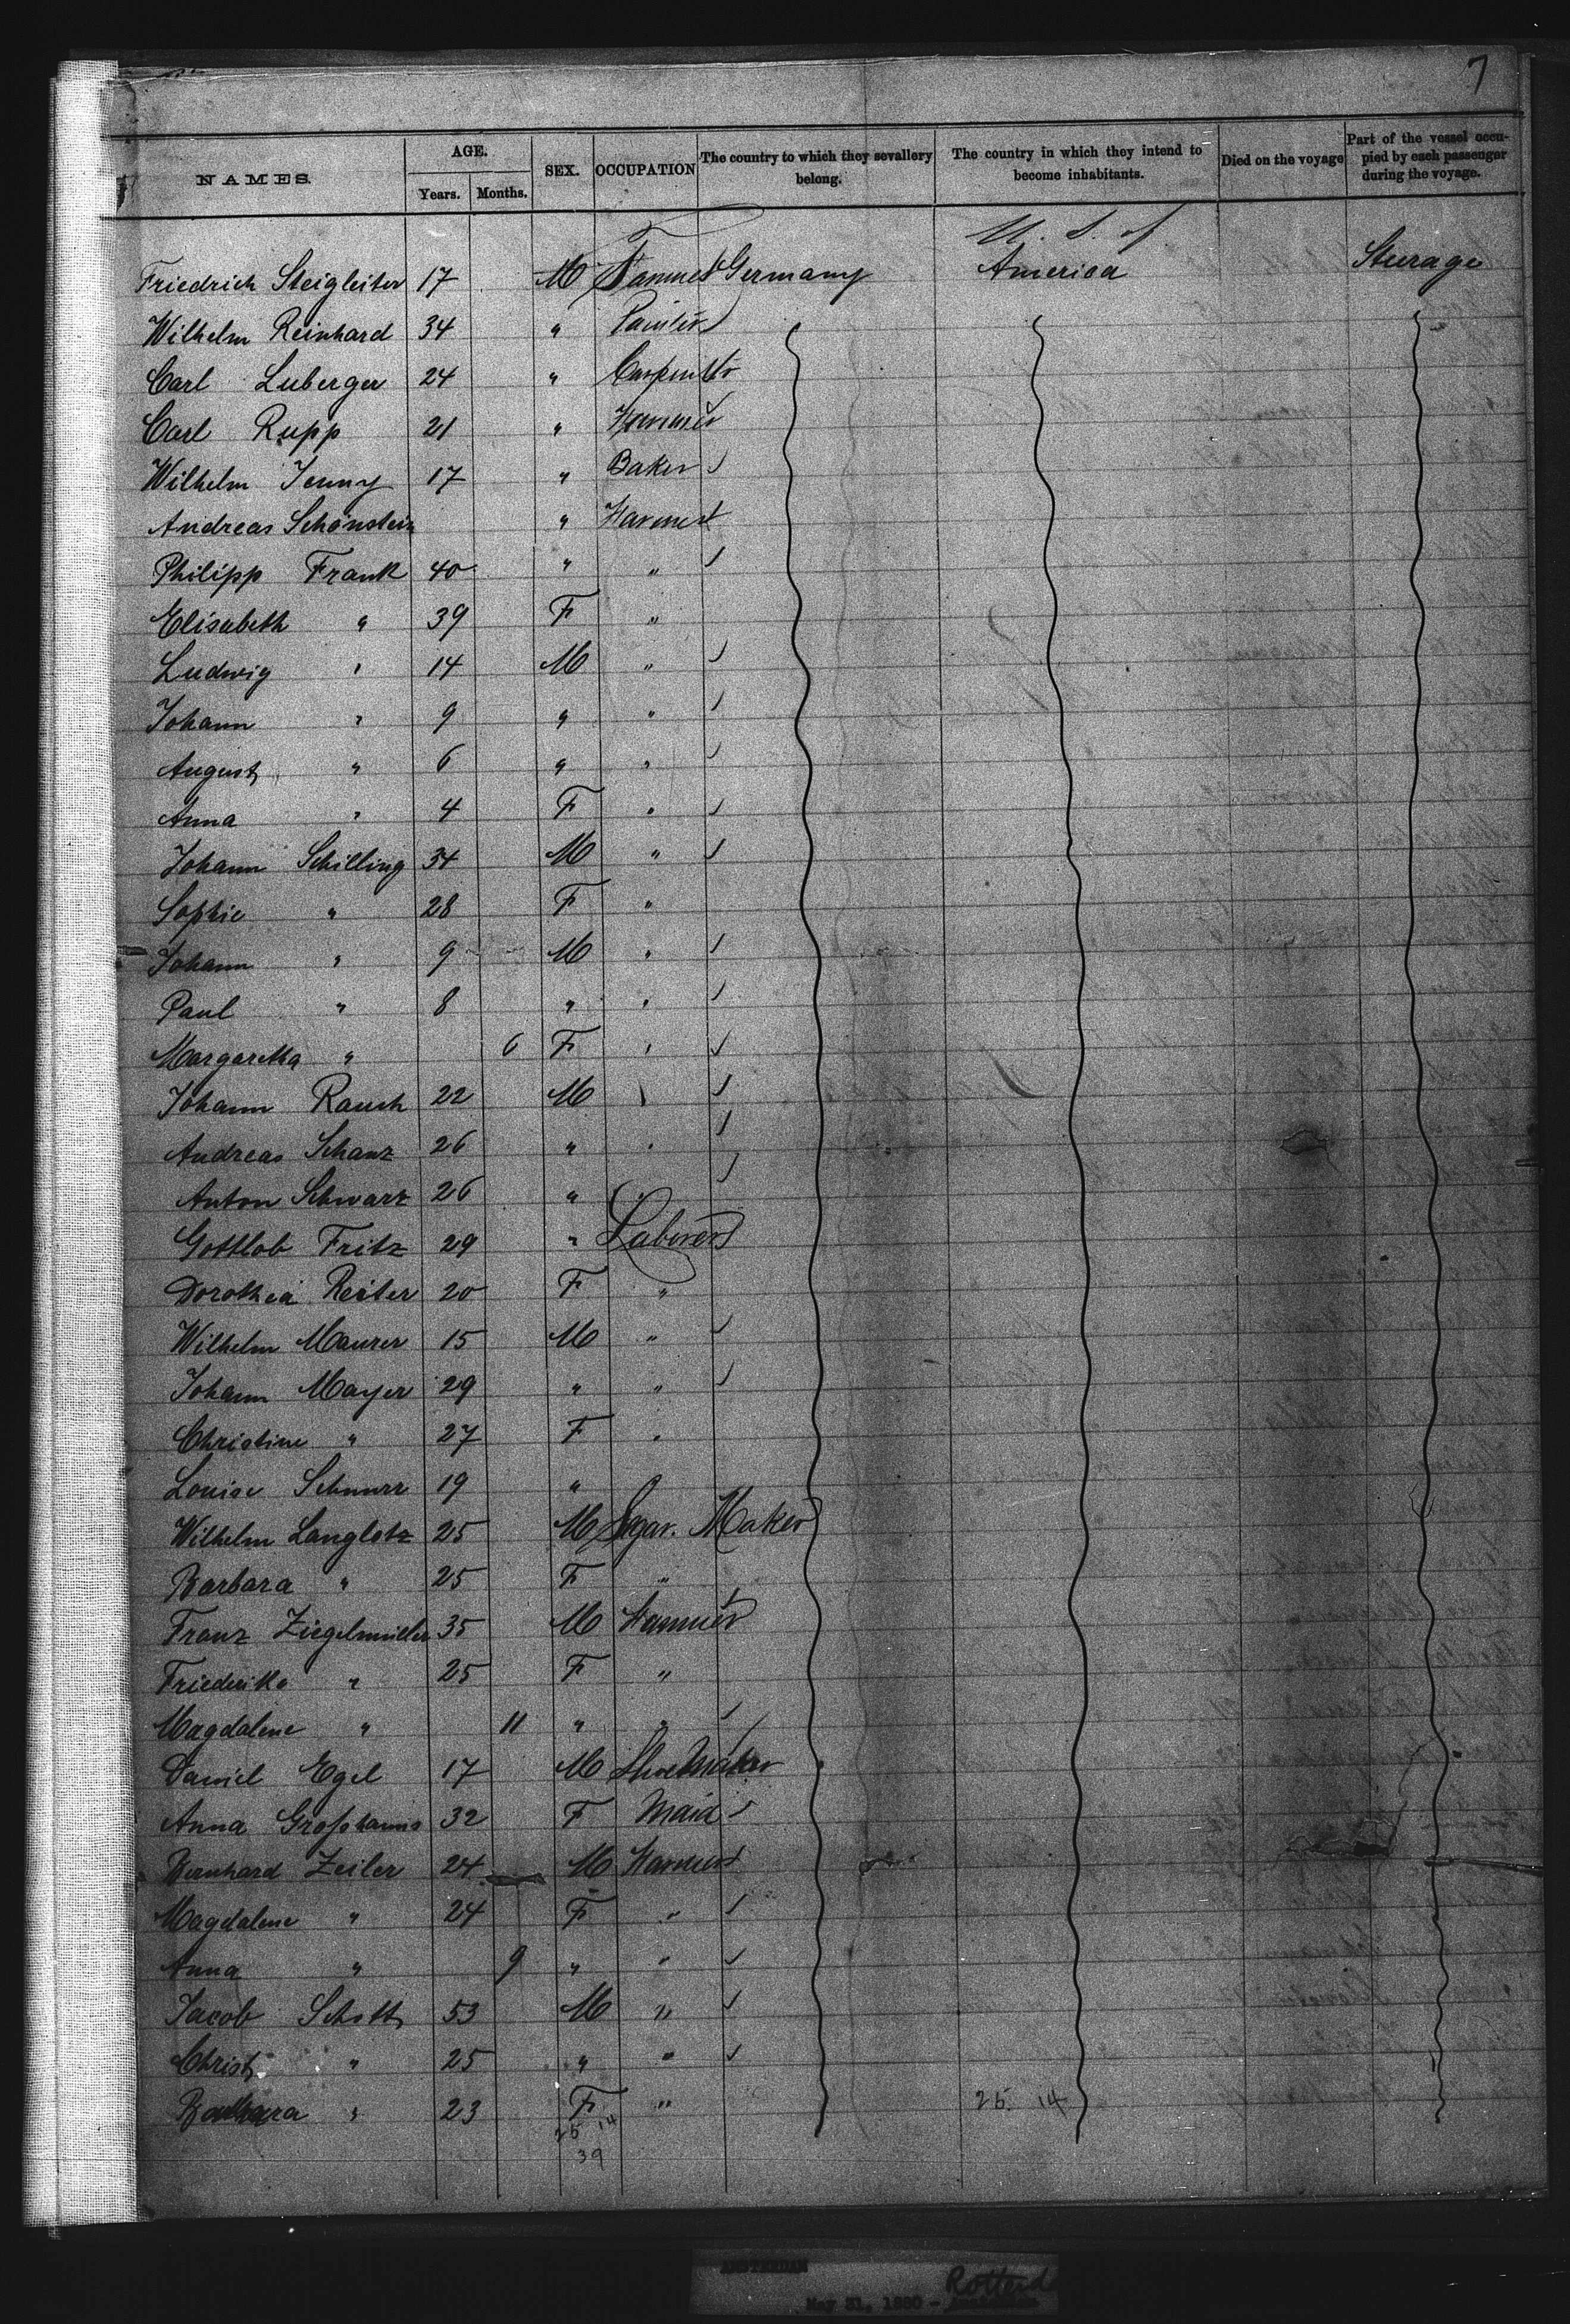 7
NAMES AGE. Years. Months. SEX. OCCUPATION The country to which they sevallery belong. The country in which they intend to become inhabitants. Died on the voyage Part of the vessel occupied by each passenger during the voyage.
U. S. of
Friedrich Steigleiter 17 M Farmer Germany America Steerage
Wilhelm Reinhard 34 " Painter
Carl Luberger 24 " Carpenter
Carl Rupp 21 " Farmer
Wilhelm Jenny 17 " Baker
Andreas Schönstein " Farmer
Philipp Frank 40 " "
Elisabeth " 39 F "
Ludwig " 14 M "
Johann " 9 " "
August " 6 " "
Anna " 4 F "
Johann Schilling 34 M "
Sophie " 28 F "
Johann " 9 M "
Paul " 8 " "
Margaretha " 6 F "
Johann Rausch 22 M "
Andreas Schanz 26 " "
Anton Schwarz 26 " "
Gottlob Fritz 29 " Laborer
Dorothea Reiter 20 F "
Wilhelm Maurer 15 M "
Johann Mayer 29 " "
Christine " 27 F "
Louise Schnurr 19 "
Wilhelm Langlotz 25 M Segar. Maker
Barbara " 25 F "
Franz Ziegelmüller 35 M Farmer
Friederike " 25 F "
Magdalene " 11 " "
Daniel Egel 17 M Shoemaker
Anna Großhanns 32 F Maid
Bernhard Zeiler 24 M Farmer
Magdalene " 24 F "
Anna " 9 " "
Jacob Schott 53 M "
Christ. " 25 " "
Barbara " 23 F " 25 14
25 14
39
AMSTERDAM
Rotterd
May 21, 1880 -